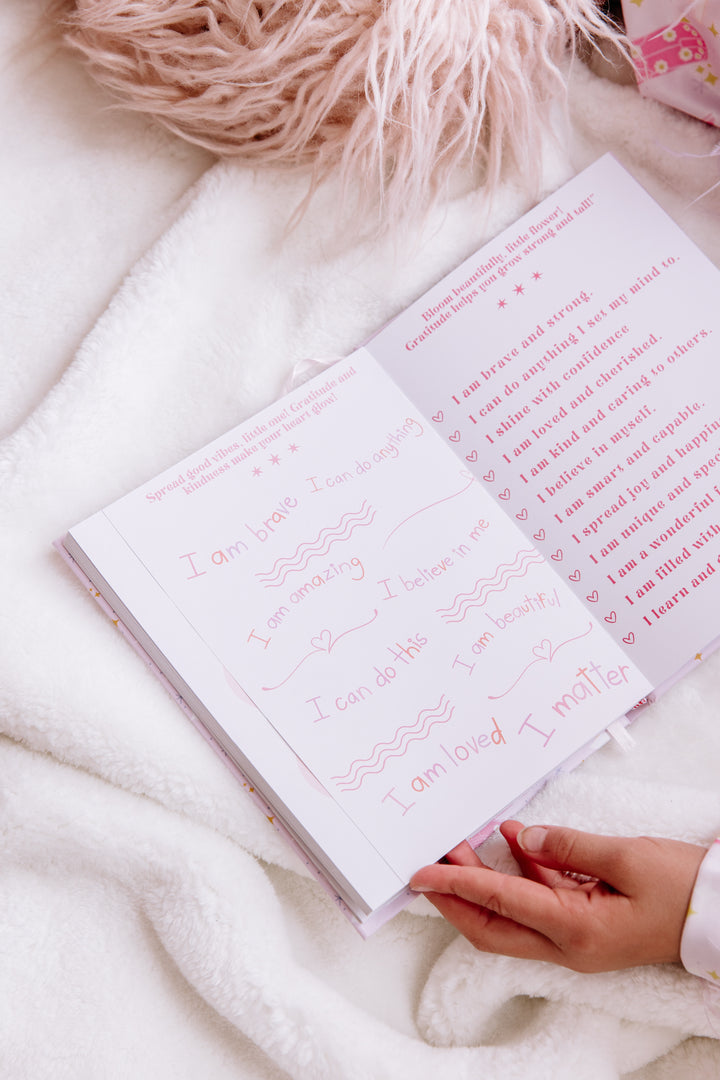 Spread good vibes, little one! Gratitude and
kindness make your heart glow!
I am brave
I can do anything
I am amazing
I believe in me
I can do this
I am beautiful
I am loved
I matter
Bloom beautifully, little flower!
Gratitude helps you grow strong and tall!"
I am brave and strong.
I can do anything I set my mind to.
I shine with confidence
I am loved and cherished.
I am kind and caring to others.
I believe in myself.
I am smart and capable.
I spread joy and
I am unique and
I am a wonderful
I am filled with
I learn and